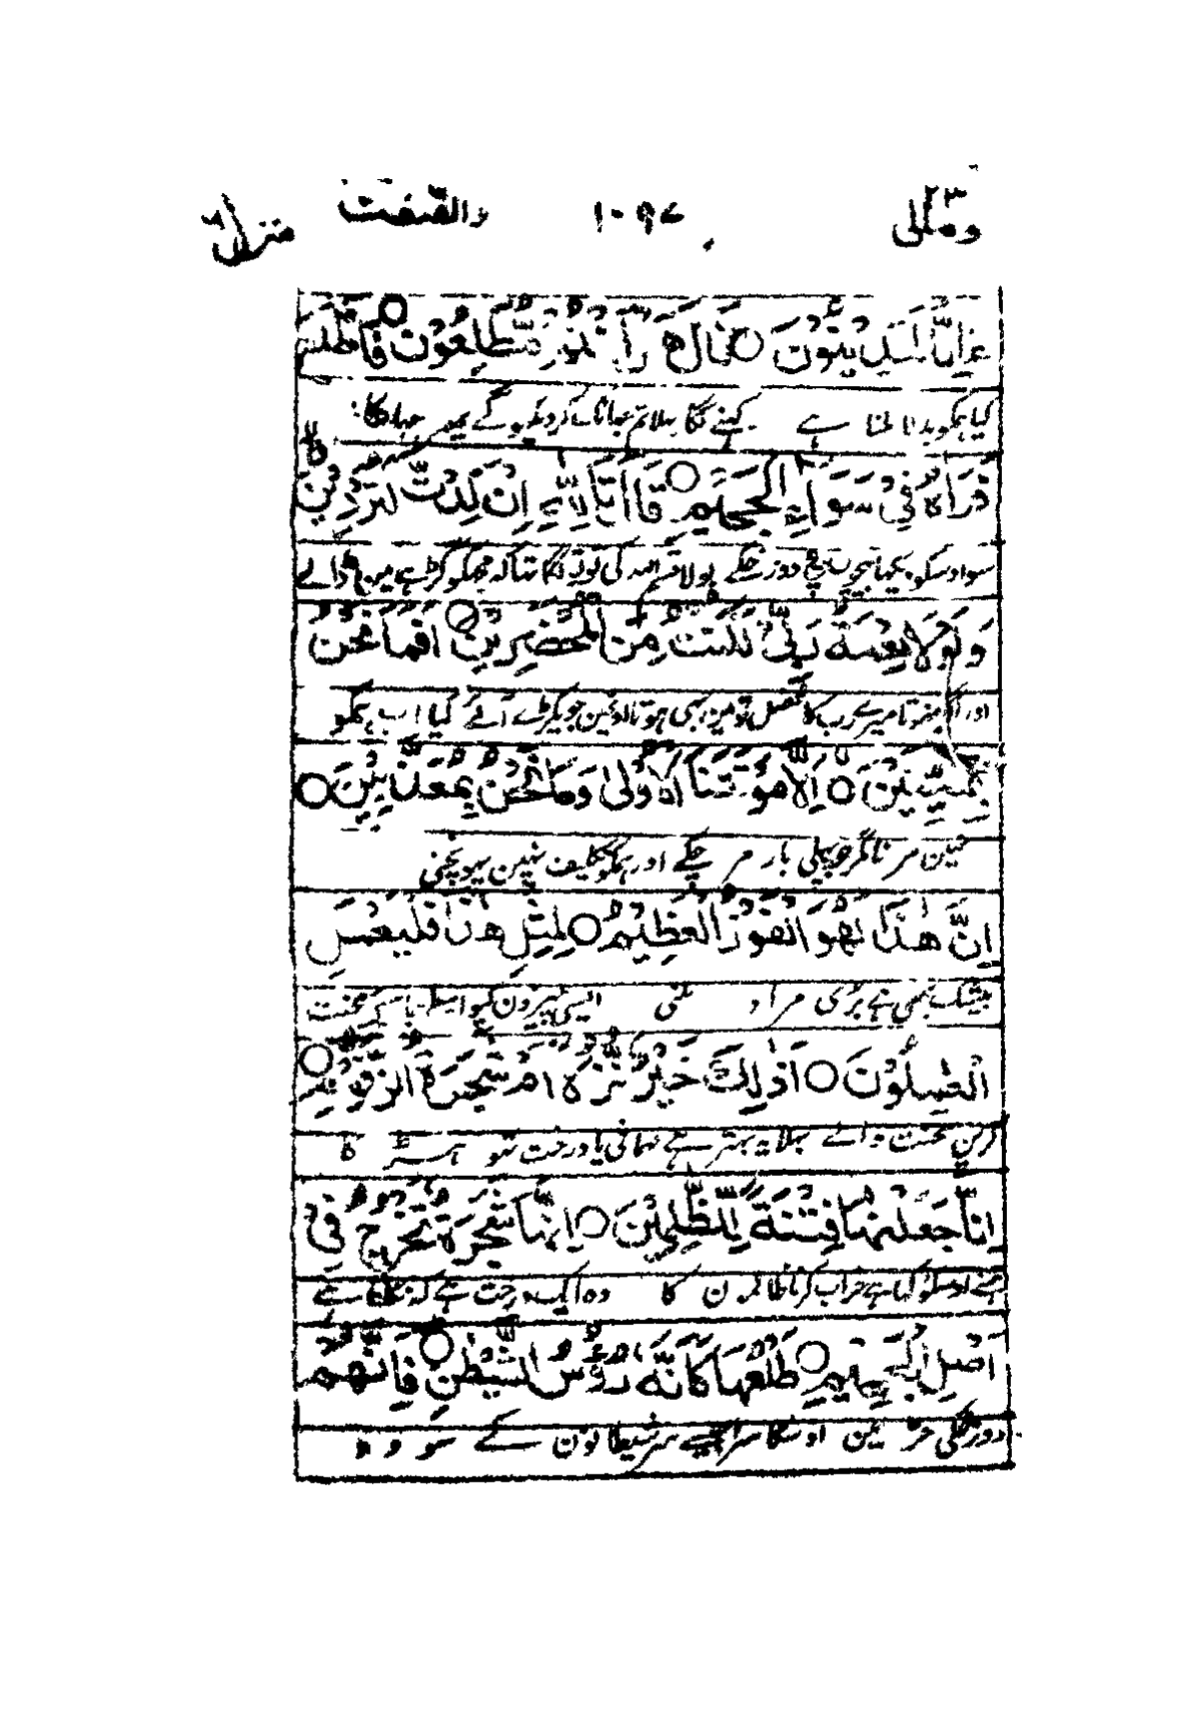 ومالی ٢٣ ١٠٩٧ والصّٰفّٰت منزل ٦
ءَاِنَّا لَمَدِیْنُوْنَ ○ قَالَ هَلْ اَنْتُمْ مُّطَّلِعُوْنَ ○ فَاطَّلَعَ
کیا ہمکو بدلا ملنا ہے کہنے لگا بہلا تم جہانک کر دیکہو گے پہر جہانکا
فَرَاٰهُ فِیْ سَوَآءِ الْجَحِیْمِ ○ قَالَ تَاللّٰهِ اِنْ كِدْتَّ لَتُرْدِیْنِ
سو اوسکو دیکہا بیچوں بیچ دوزخ کے بولا قسم اللہ کی تو تو لگا تہا کہ مجھکو گڑہے میں ڈالے
وَلَوْلَا نِعْمَةُ رَبِّیْ لَكُنْتُ مِنَ الْمُحْضَرِیْنَ ○ اَفَمَا نَحْنُ
اور اگر نہوتا میرے رب کا فضل تو میں بہی ہوتا اونہین جو پکڑے آئے کیا اب ہمکو
بِمَیِّتِیْنَ ○ اِلَّا مَوْتَتَنَا الْاُوْلٰی وَمَا نَحْنُ بِمُعَذَّبِیْنَ ○
نہین مرنا مگر جو پہلی بار مر چکے اور ہمکو تکلیف نہین پہونچنی
اِنَّ هٰذَا لَهُوَ الْفَوْزُ الْعَظِیْمُ ○ لِمِثْلِ هٰذَا فَلْیَعْمَلِ
بیشک یہی ہے بڑی مراد ملنی ایسی چیزون کیواسطے چاہئے محنت
الْعٰمِلُوْنَ ○ اَذٰلِكَ خَیْرٌ نُّزُلًا اَمْ شَجَرَةُ الزَّقُّوْمِ ○
کرین محنت والے بہلا یہ بہتر ہے مہمانی یا درخت سہنڈ کا
اِنَّا جَعَلْنٰهَا فِتْنَةً لِّلظّٰلِمِیْنَ ○ اِنَّهَا شَجَرَةٌ تَخْرُجُ فِیْ
ہمنے اوسکو کیا ہے خراب کرنا ظالمون کا وہ ایک درخت ہے کہ نکلتا ہے
اَصْلِ الْجَحِیْمِ ○ طَلْعُهَا كَاَنَّهٗ رُءُوْسُ الشَّیٰطِیْنِ ○ فَاِنَّهُمْ
دوزخ کی جڑ مین اوسکا سرا جیسے سر شیطانون کے سو وہ